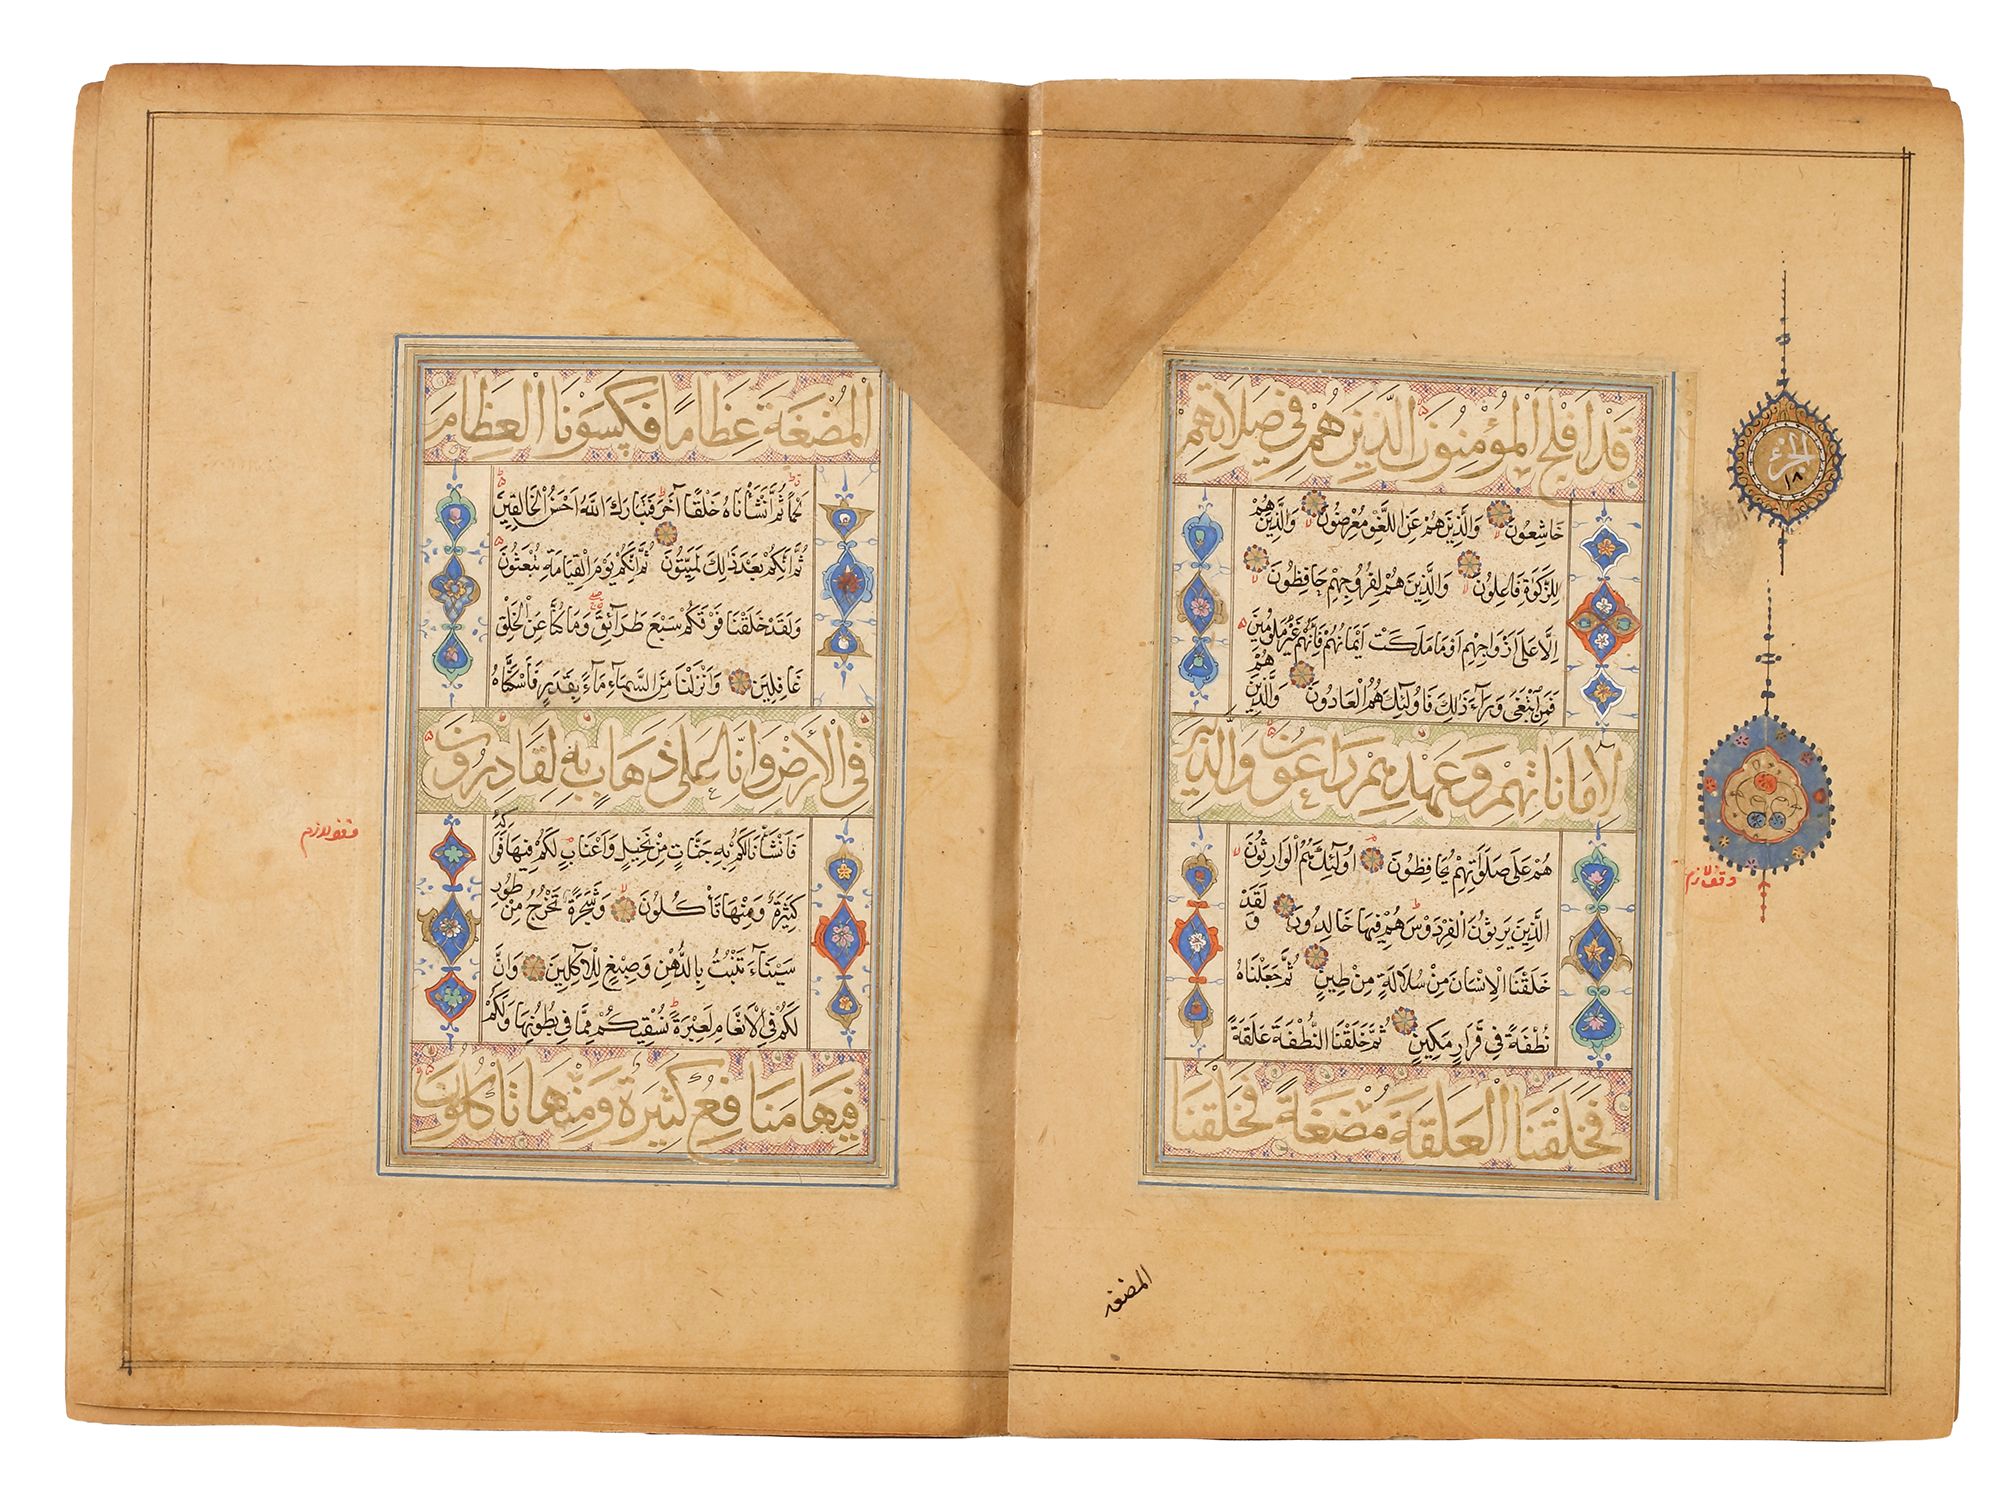 قَدْ اَفْلَحَ الْمُؤْمِنُونَ الَّذِينَ هُمْ فِى صَلَاتِهِمْ
خَاشِعُونَ وَالَّذِينَ هُمْ عَنِ اللَّغْوِ مُعْرِضُونَ وَالَّذِينَ هُمْ
لِلزَّكٰوةِ فَاعِلُونَ وَالَّذِينَ هُمْ لِفُرُوجِهِمْ حَافِظُونَ
اِلَّا عَلٰى اَزْوَاجِهِمْ اَوْ مَا مَلَكَتْ اَيْمَانُهُمْ فَاِنَّهُمْ غَيْرُ مَلُومِينَ
فَمَنِ ابْتَغٰى وَرَآءَ ذٰلِكَ فَاُولٰئِكَ هُمُ الْعَادُونَ وَالَّذِينَ هُمْ
لِاَمَانَاتِهِمْ وَعَهْدِهِمْ رَاعُونَ وَالَّذِينَ
هُمْ عَلٰى صَلَوَاتِهِمْ يُحَافِظُونَ اُولٰئِكَ هُمُ الْوَارِثُونَ
الَّذِينَ يَرِثُونَ الْفِرْدَوْسَ هُمْ فِيهَا خَالِدُونَ وَلَقَدْ
خَلَقْنَا الْاِنْسَانَ مِنْ سُلَالَةٍ مِنْ طِينٍ ثُمَّ جَعَلْنَاهُ
نُطْفَةً فِى قَرَارٍ مَكِينٍ ثُمَّ خَلَقْنَا النُّطْفَةَ عَلَقَةً
فَخَلَقْنَا الْعَلَقَةَ مُضْغَةً فَخَلَقْنَا
المضغة
الجزء
١٨
وقف لازم
الْمُضْغَةَ عِظَامًا فَكَسَوْنَا الْعِظَامَ
لَحْمًا ثُمَّ اَنْشَاْنَاهُ خَلْقًا آخَرَ فَتَبَارَكَ اللّٰهُ اَحْسَنُ الْخَالِقِينَ
ثُمَّ اِنَّكُمْ بَعْدَ ذٰلِكَ لَمَيِّتُونَ ثُمَّ اِنَّكُمْ يَوْمَ الْقِيَامَةِ تُبْعَثُونَ
وَلَقَدْ خَلَقْنَا فَوْقَكُمْ سَبْعَ طَرَآئِقَ وَمَا كُنَّا عَنِ الْخَلْقِ
غَافِلِينَ وَاَنْزَلْنَا مِنَ السَّمَآءِ مَآءً بِقَدَرٍ فَاَسْكَنَّاهُ
فِى الْاَرْضِ وَاِنَّا عَلٰى ذَهَابٍ بِهِ لَقَادِرُونَ
فَاَنْشَاْنَا لَكُمْ بِهِ جَنَّاتٍ مِنْ نَخِيلٍ وَاَعْنَابٍ لَكُمْ فِيهَا فَوَاكِهُ
كَثِيرَةٌ وَمِنْهَا تَاْكُلُونَ وَشَجَرَةً تَخْرُجُ مِنْ طُورِ
سَيْنَآءَ تَنْبُتُ بِالدُّهْنِ وَصِبْغٍ لِلْآكِلِينَ وَاِنَّ
لَكُمْ فِى الْاَنْعَامِ لَعِبْرَةً نُسْقِيكُمْ مِمَّا فِى بُطُونِهَا وَلَكُمْ
فِيهَا مَنَافِعُ كَثِيرَةٌ وَمِنْهَا تَاْكُلُونَ
وقف لازم